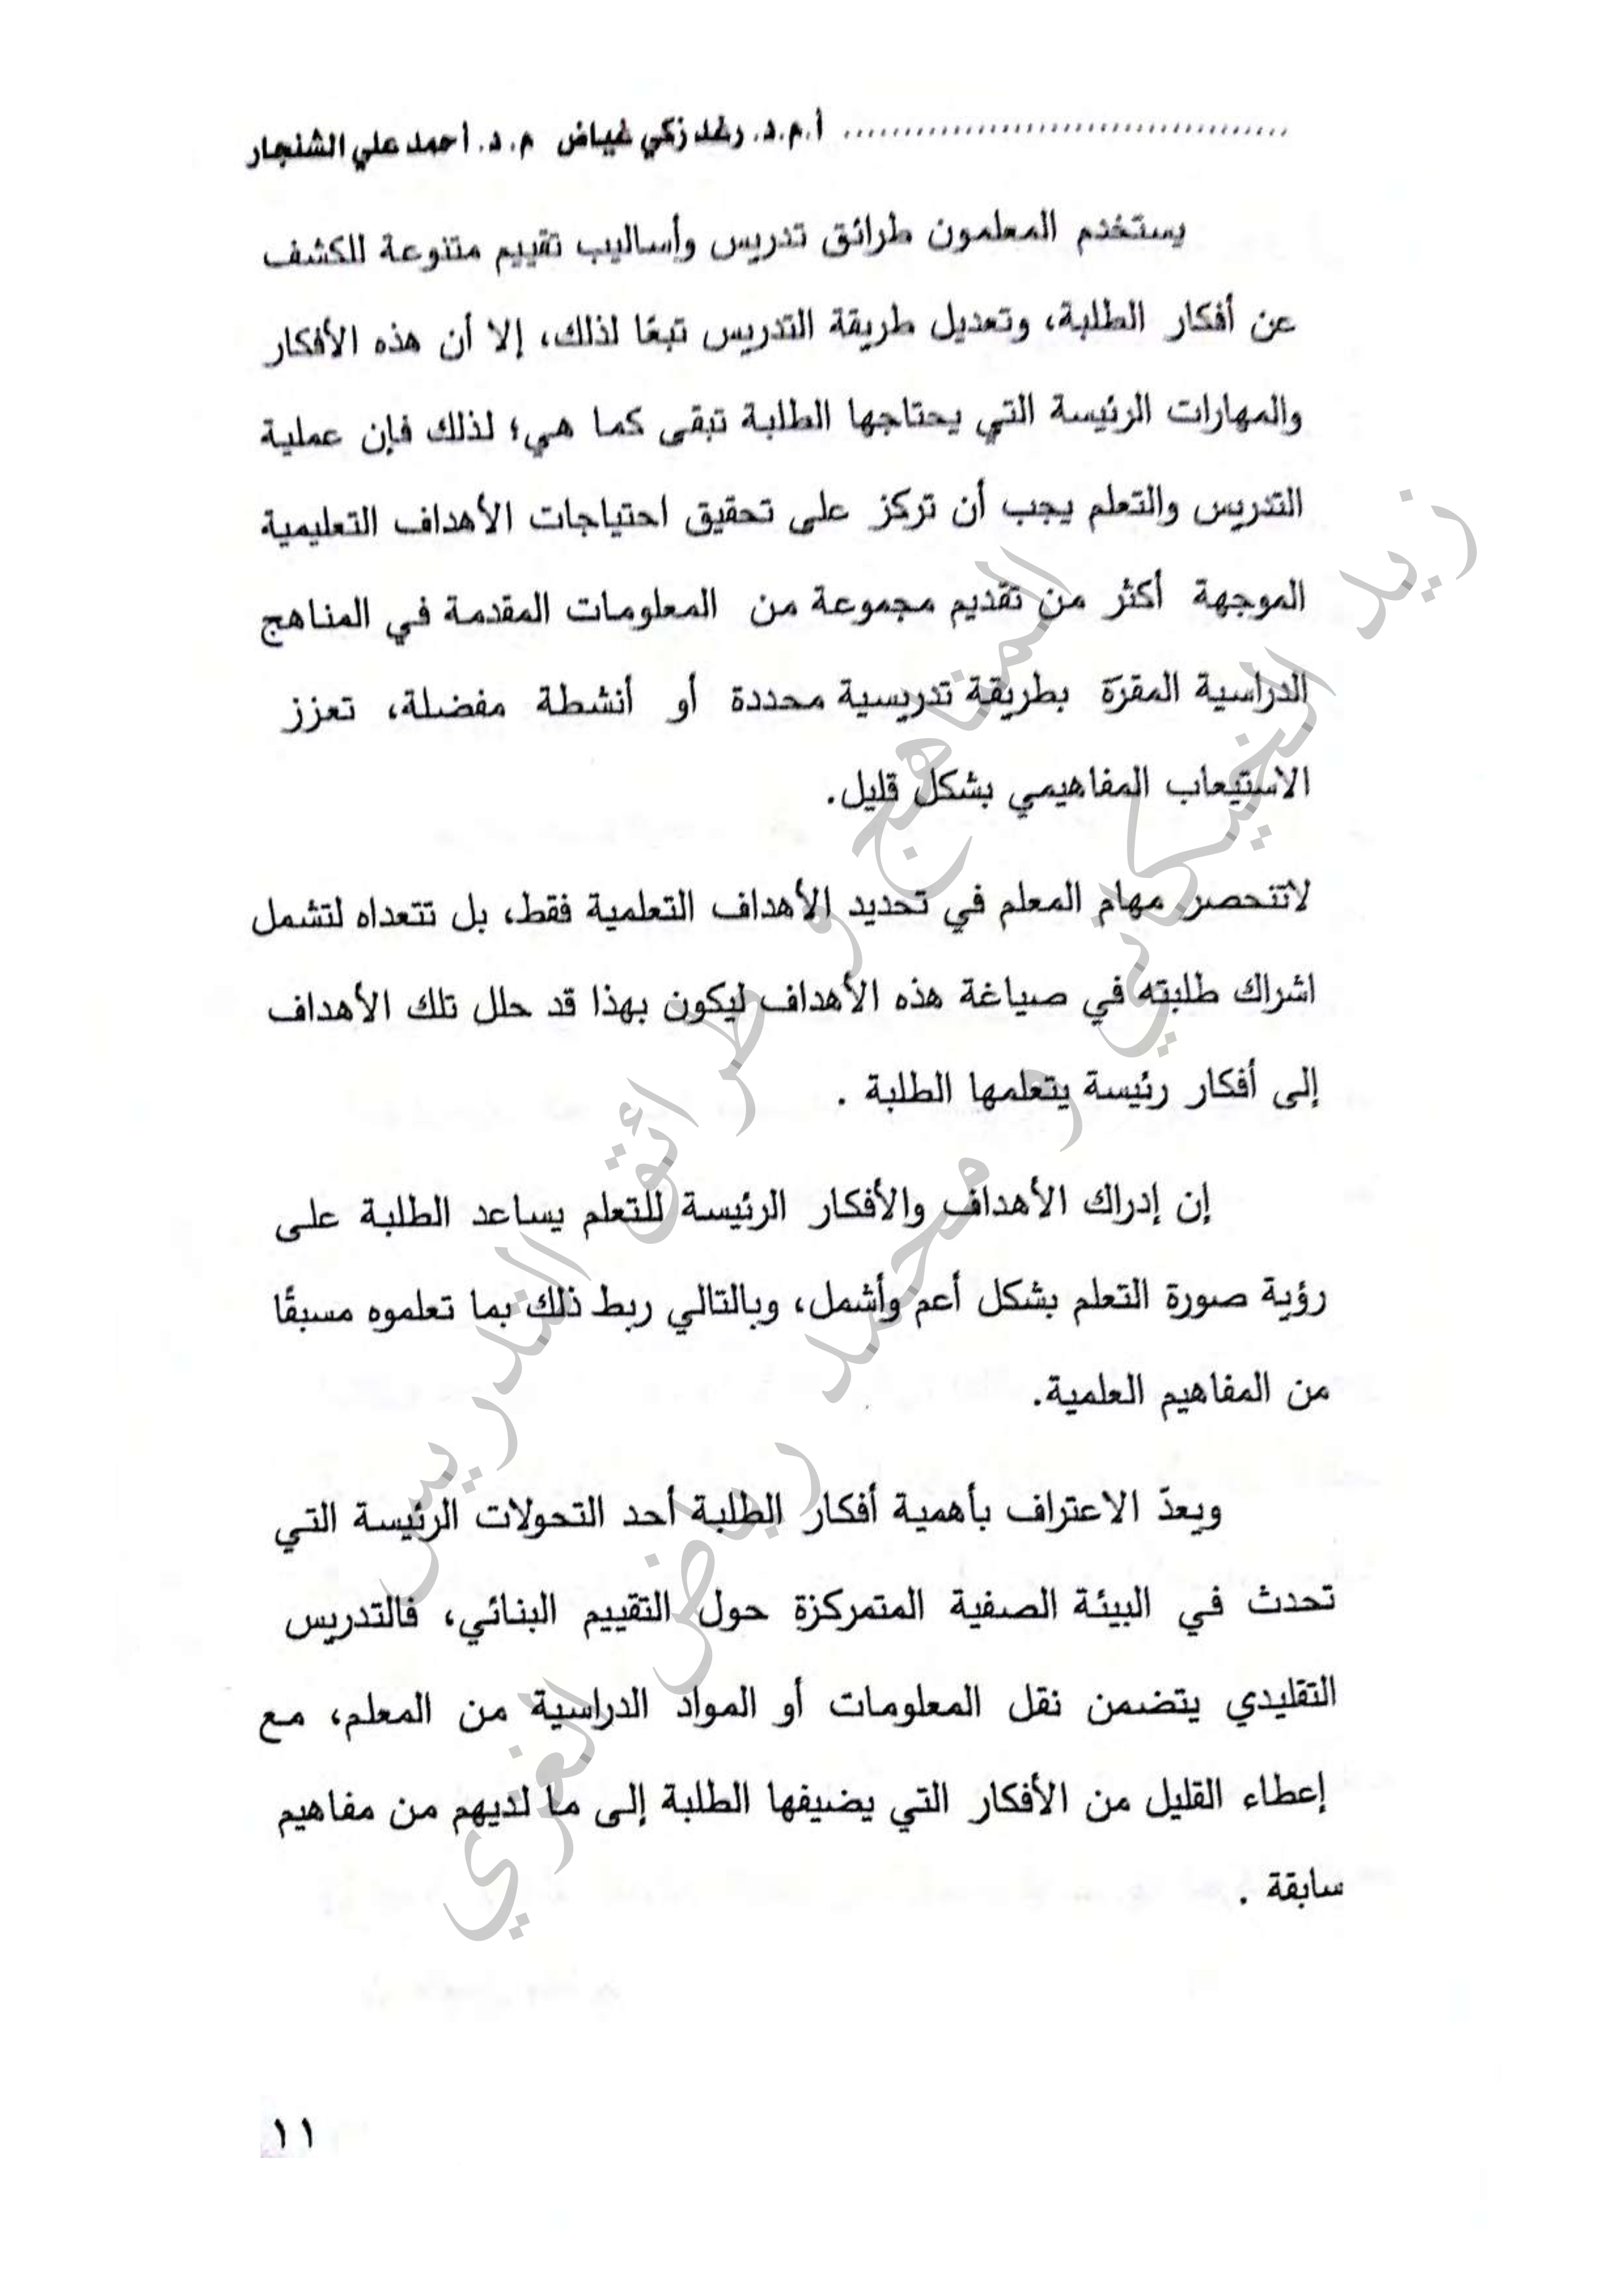 ................................ أ.م.د. رغد زكي غياض م.د. أحمد علي الشنجار
يستخدم المعلمون طرائق تدريس وأساليب تقييم متنوعة للكشف
عن أفكار الطلبة، وتعديل طريقة التدريس تبعًا لذلك، إلا أن هذه الأفكار
والمهارات الرئيسة التي يحتاجها الطلبة تبقى كما هي؛ لذلك فإن عملية
التدريس والتعلم يجب أن تركز على تحقيق احتياجات الأهداف التعليمية
الموجهة أكثر من تقديم مجموعة من المعلومات المقدمة في المناهج
الدراسية المقرّة بطريقة تدريسية محددة أو أنشطة مفضلة، تعزز
الاستيعاب المفاهيمي بشكل قليل.
لاتنحصر مهام المعلم في تحديد الأهداف التعلمية فقط، بل تتعداه لتشمل
اشراك طلبته في صياغة هذه الأهداف ليكون بهذا قد حلل تلك الأهداف
إلى أفكار رئيسة يتعلمها الطلبة .
إن إدراك الأهداف والأفكار الرئيسة للتعلم يساعد الطلبة على
رؤية صورة التعلم بشكل أعم وأشمل، وبالتالي ربط ذلك بما تعلموه مسبقًا
من المفاهيم العلمية.
ويعدّ الاعتراف بأهمية أفكار الطلبة أحد التحولات الرئيسة التي
تحدث في البيئة الصفية المتمركزة حول التقييم البنائي، فالتدريس
التقليدي يتضمن نقل المعلومات أو المواد الدراسية من المعلم، مع
إعطاء القليل من الأفكار التي يضيفها الطلبة إلى ما لديهم من مفاهيم
سابقة .
١١
المناهج و طرائق التدريس
زيد الخيكاني و محمد رياض الغزي